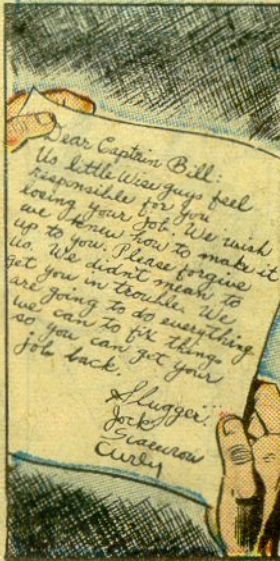 Dear Captain Bill:
Us little Wise guys feel
responsible for you
losing your job. We wish
we knew how to make it
up to you. Please forgive
us. We didn't mean to
get you in trouble. We
are going to do everything
we can to fix things
so you can get your
job back.
Slugger
Jock
Scarecrow
Curly